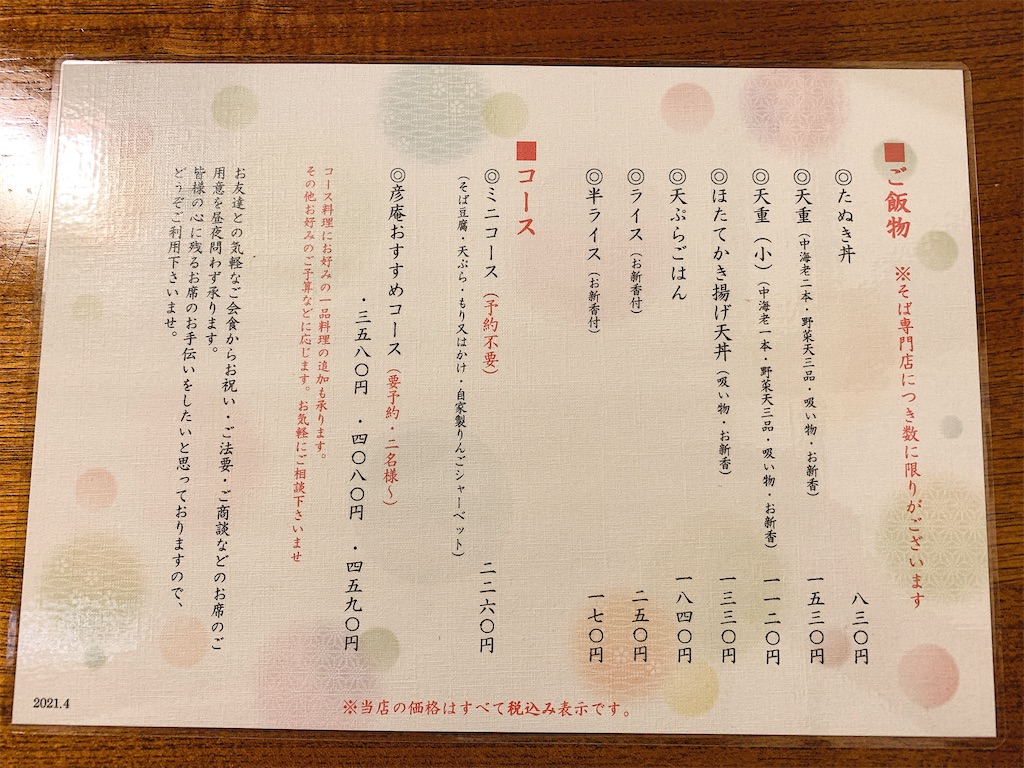 ■ご飯物 ※そば専門店につき数に限りがございます
◎たぬき丼 八三〇円
◎天重（中海老二本・野菜天三品・吸い物・お新香） 一五三〇円
◎天重（小）（中海老一本・野菜天三品・吸い物・お新香） 一一二〇円
◎ほたてかき揚げ天丼（吸い物・お新香） 一三三〇円
◎天ぷらごはん 一八四〇円
◎ライス（お新香付） 二五〇円
◎半ライス（お新香付） 一七〇円
■コース
◎ミニコース（予約不要） 二二六〇円
（そば豆腐・天ぷら・もり又はかけ・自家製りんごシャーベット）
◎彦庵おすすめコース（要予約・二名様～）
・三五八〇円 ・四〇八〇円 ・四五九〇円
コース料理にお好みの一品料理の追加も承ります。
その他お好みのご予算などに応じます。お気軽にご相談下さいませ
お友達との気軽なご会食からお祝い・ご法要・ご商談などのお席のご
用意を昼夜問わず承ります。
皆様の心に残るお席のお手伝いをしたいと思っておりますので、
どうぞご利用下さいませ。
※当店の価格はすべて税込み表示です。
2021.4